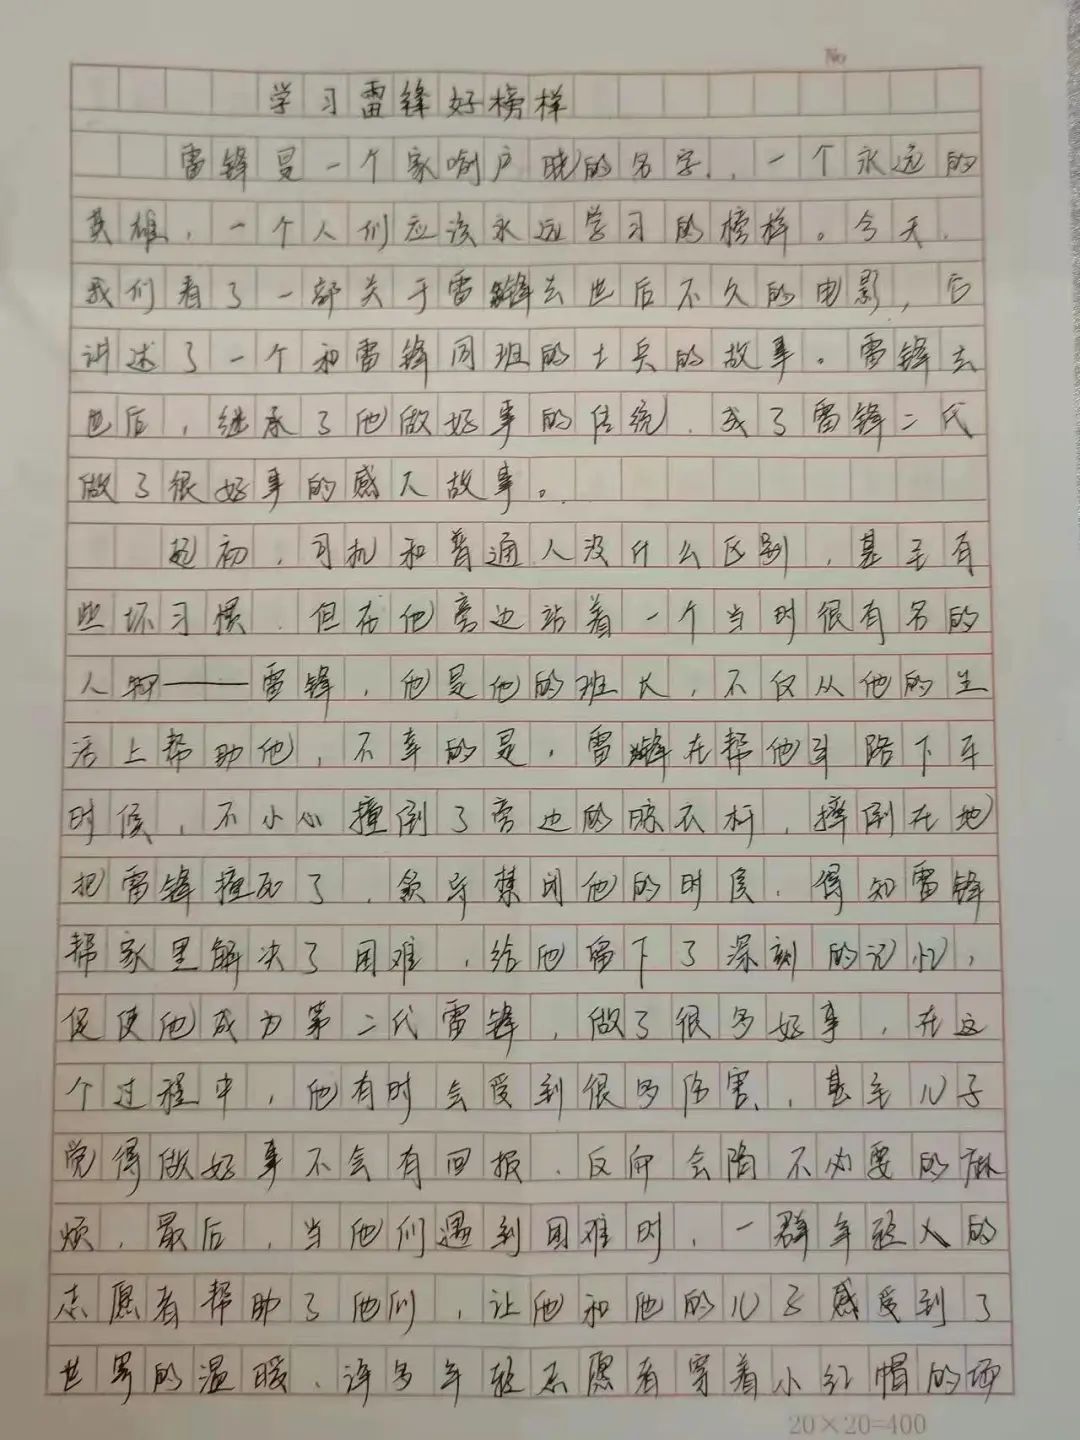 No
学习雷锋好榜样
雷锋是一个家喻户晓的名字，一个永远的
英雄，一个人们应该永远学习的榜样。今天，
我们看了一部关于雷锋去世后不久的电影，它
讲述了一个和雷锋同班的士兵的故事。雷锋去
世后，继承了他做好事的传统，成了雷锋二代
做了很好事的感人故事。
起初，司机和普通人没什么区别，甚至有
些坏习惯，但在他旁边站着一个当时很有名的
人物——雷锋，他是他的班长，不仅从他的生
活上帮助他，不幸的是，雷锋在帮他 路下车
时候，不小心撞倒了旁边的晾衣杆，摔倒在地
把雷锋撞死了，领导禁闭他的时候，得知雷锋
帮家里解决了困难，给他留下了深刻的记忆，
促使他成为第二代雷锋，做了很多好事，在这
个过程中，他有时会受到很多伤害，甚至儿子
觉得做好事不会有回报，反而会陷不必要的麻
烦，最后，当他们遇到困难时，一群年轻人的
志愿者帮助了他们，让他和他的儿子感受到了
世界的温暖，许多年轻志愿者穿着小红帽的场
20×20=400